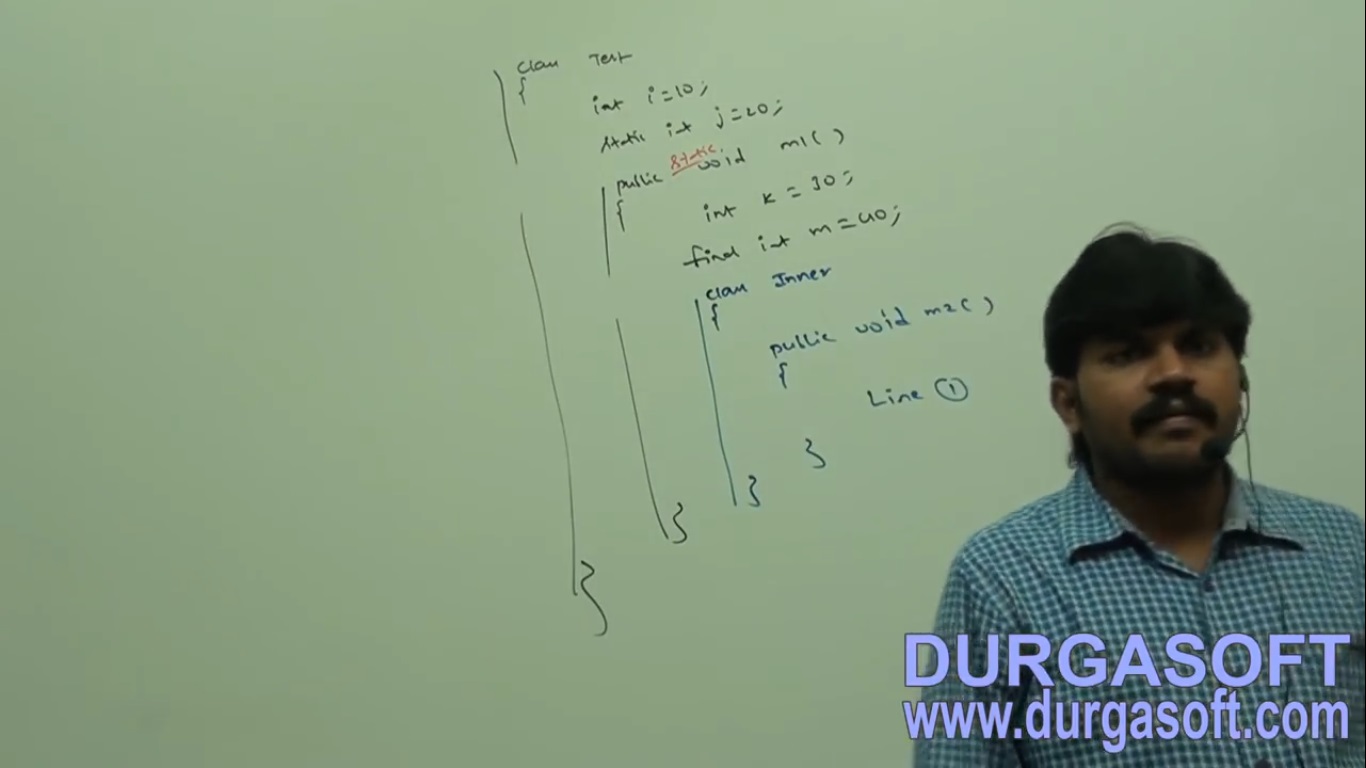 class Test
{
int i=10;
static int j=20;
public static void m1()
{
int k = 30;
final int m=40;
class Inner
{
public void m2()
{
Line ①
}
}
}
}
DURGASOFT
www.durgasoft.com